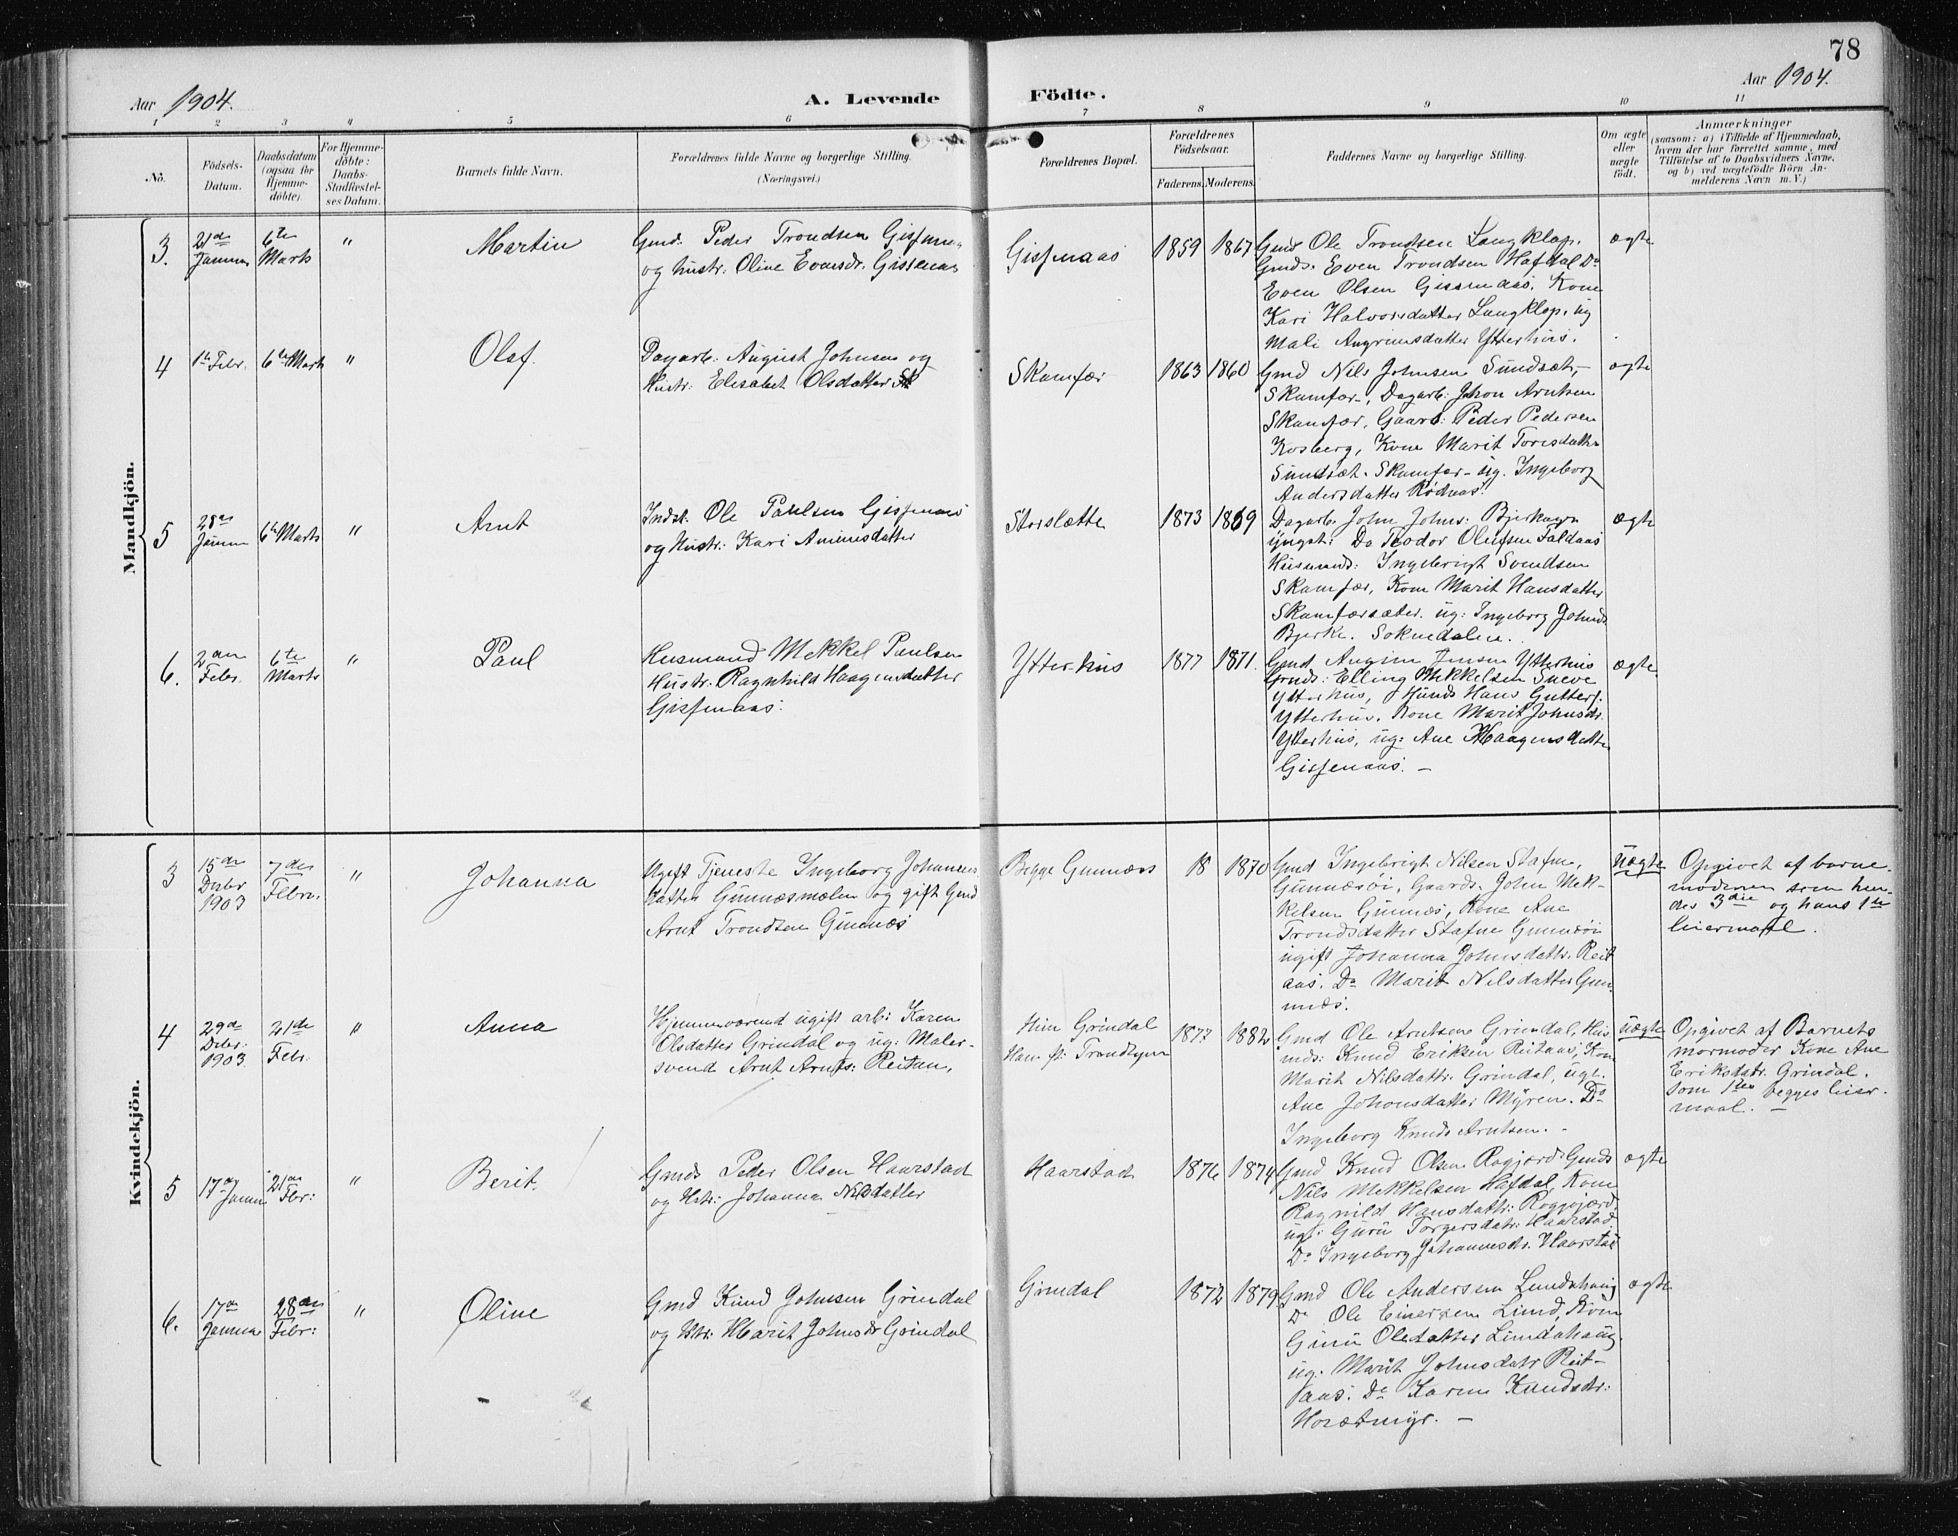 78
Aar 1904.
A. Levende Födte.
Aar 1904.
1 2 3 4 5 6 7 8 9 10 11
No.
Födsels-
Datum.
Daabsdatum
(ogsaa for
Hjemme-
döbte).
For Hjemme-
döbte:
Daabs-
Stadfæstel-
ses Datum.
Barnets fulde Navn.
Forældrenes fulde Navne og borgerlige Stilling.
(Næringsvei.)
Forældrenes Bopæl.
Forældrenes
Födselsaar.
Faderens. Moderens.
Faddernes Navne og borgerlige Stilling.
Om ægte
eller
uægte
födt.
Anmærkninger
(saasom: a) i Tilfælde af Hjemmedaab,
hvem der har forrettet samme, med
Tilföielse af to Daabsvidners Navne,
og b) ved uægtefödte Börn An-
melderens Navn m. V.)
Mandkjön.
3.
21de
6te
Marts
"
Martin
Gmd. Peder Trondsen
og hustr. Oline
Gissenaas
1859
1867
Gmd Ole Trondsen Langklop,
Gmds. Even Trondsen Hafdal Do
Even Olsen Gissenaas, Kone
Kari Halvorsdatter Langklop, ug
Mali Angrimsdatter Ytterhus.
ægte
4
1te Febr.
6te Marts
"
Olaf.
Dagarb. August Johnsen og
Hustr: Elisabet Olsdatter Sk
Skamfær
1863
1860
Gmd Nils Johnsen Sundsæt,
Skamfær, Dagarb: Johon Arntsen
Skamfær, Gaarb: Peder Pedersen
Kosberg, Kone Marit Toresdatter
Sundsæt. Skamfær ug. Ingeborg
Andersdatter Rødaas.
ægte
5
28de
6te Marts
"
Arnt
Indst. Ole Paulsen Gissenaas
og Hustr: Kari
Storslætte
1873
1869
Dagarb. John Johns:
yngst: Do Teodor Olufsen Faldaas
Husmnds: Ingebrigt Svendsen
Skamfær, Kone Marit Hansdatter
Skamfærsæter. ug: Ingeborg Johnsd.
Bjerke. Soknedalen.
ægte
6.
2den
Febr.
6te
Marts
"
Paul
Husmand Mekkel Paulsen
Hustr: Ragnhild Haagensdatter
Gissenaas:
Ytterhus
1877
1871.
Gmd Jensen Ytterhus
Gmds: Elling Mekkelsen Sneve
Ytterhus, Hans
Ytterhus. Kone Marit Johnsdr.
Ytterhus, ug: Ane Haagensdatter
Gissenaas. —
ægte.
Kvindekjön.
3
15de
Decbr
1903
7de
Febr.
"
Johanna
Ugift Tjeneste Ingeborg Johannes
datter Gunnæsmælen og gift Gmd
Arnt Trondsen Gunnæs
Begge Gunnæs
18
1870
Gmd Ingebrigt Nilsen Stafne,
Gunnæsöi, Gaards. John Mek-
kelsen Gunnæs, Kone Ane
Trondsdatter Stafne Gunnæsöi
ugift Johanna Johnsdattr. Reit
aas. Do Marit Nilsdatter Gun
næs.
uægte
Opgivet af barne
moderen som hen-
des 3die og hans 1te
leiermaal.
4
29de
Decbr.
1903
21de
Febr.
"
Anna
Hjemmeværend ugift arb: Karen
Olsdatter Grindal og ug: Maler-
svend Arnt Arnts: Reitan,
Hun Grindal
Han Trondhjem
1877
1882
Gmd Ole Arntsen Grindal, Hus
mds: Knud Eriksen Reitaas, Kone
Marit Nilsdattr. Grindal, ugt.
Ane Johonsdatter Myren. Do
Ingeborg Knuds Arntsen.
uægte
Opgivet af Barnets
mormoder Kone Ane
Eriksdatr. Grindal.
Som 1te begges leier-
maal. —
5
17de
21de
Fbr:
"
Berit.
Gmds Peder Olsen Haarstad
og Hstr: Johanna Nilsdatter
Haarstad
1876
1874
Gmd Knud Olsen Rogjærd Gmds
Nils Mekkelsen Hafdal, Kone
Ragnild Hansdattr: Rogjærd,
ugt: Guru Torgersdatr: Haarstad.
Do Ingeborg Johannesdr. Haarstad
ægte
6.
17de
28de
Febr:
"
Oline
Gmd Knud Johnsen Grindal
og Hstr: Marit Johnsdr Grindal
Grindal
1872
1879
Gmd Ole Andersen Lundahaug
Do Ole Einersen Lund, Kone
Guru Olsdatter Lundahaug,
ug. Marit Johnsdatr Reit-
aas. Do Karen Knudsdr:
ægte